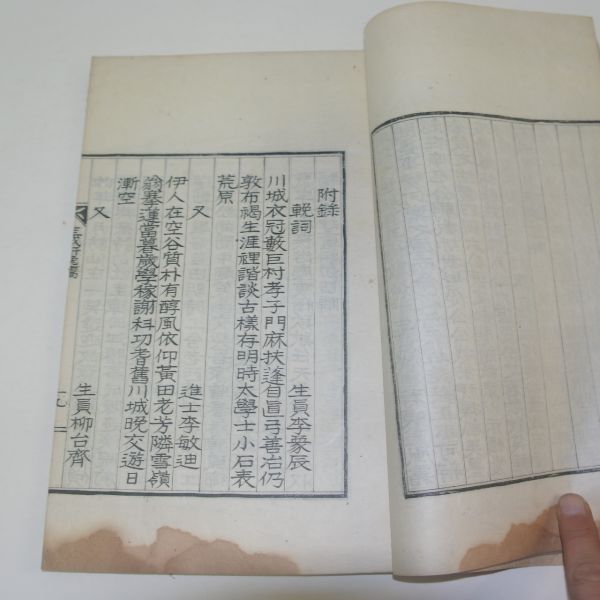 附錄
輓詞 生員李象辰
川城衣冠藪巨村孝子門麻扶蓬自直弓善冶仍
敦布褐生涯裡諧談古樣存明時太學士小石表
荒原
又 進士李敏迪
伊人在空谷質朴有醇風依仰黃田老芳隣雪嶺
翁摹蓮當暮歲學稼謝科功耆舊川城晩交遊日
漸空
又 生員柳台齊